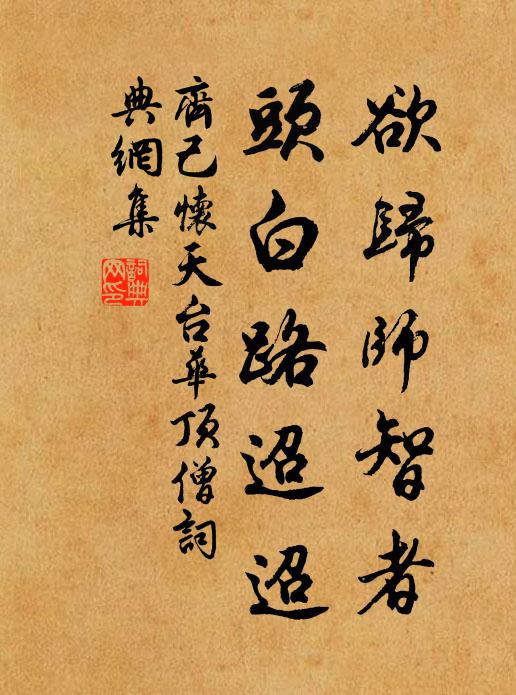 欲歸師智者
頭白路迢迢
齊己懷天台華頂僧詞
典網集
詞典網印